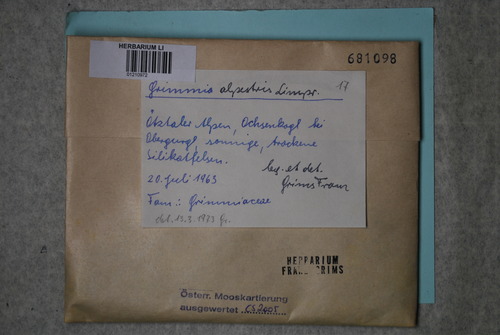 HERBARIUM LI
01210972
681098
17
Grimmia alpestris Limpr.
Ötztaler Alpen, Ochsenkogl bei
Obergurgl, sonnige, trockene
Silikatfelsen.
leg. et det.
20. Juli 1963
Grims Franz
Fam.: Grimmiaceae
13.3.1983 Gr.
HERBARIUM
FRANZ GRIMS
Österr. Mooskartierung
ausgewertet CS 2005